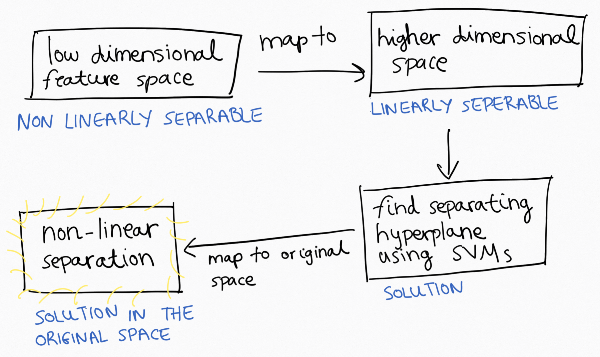 low dimensional
feature space
NON LINEARLY SEPARABLE
map to
higher dimensional
space
LINEARLY SEPERABLE
find separating
hyperplane
using SVMs
SOLUTION
map to original
space
non-linear
separation
SOLUTION IN THE
ORIGINAL SPACE